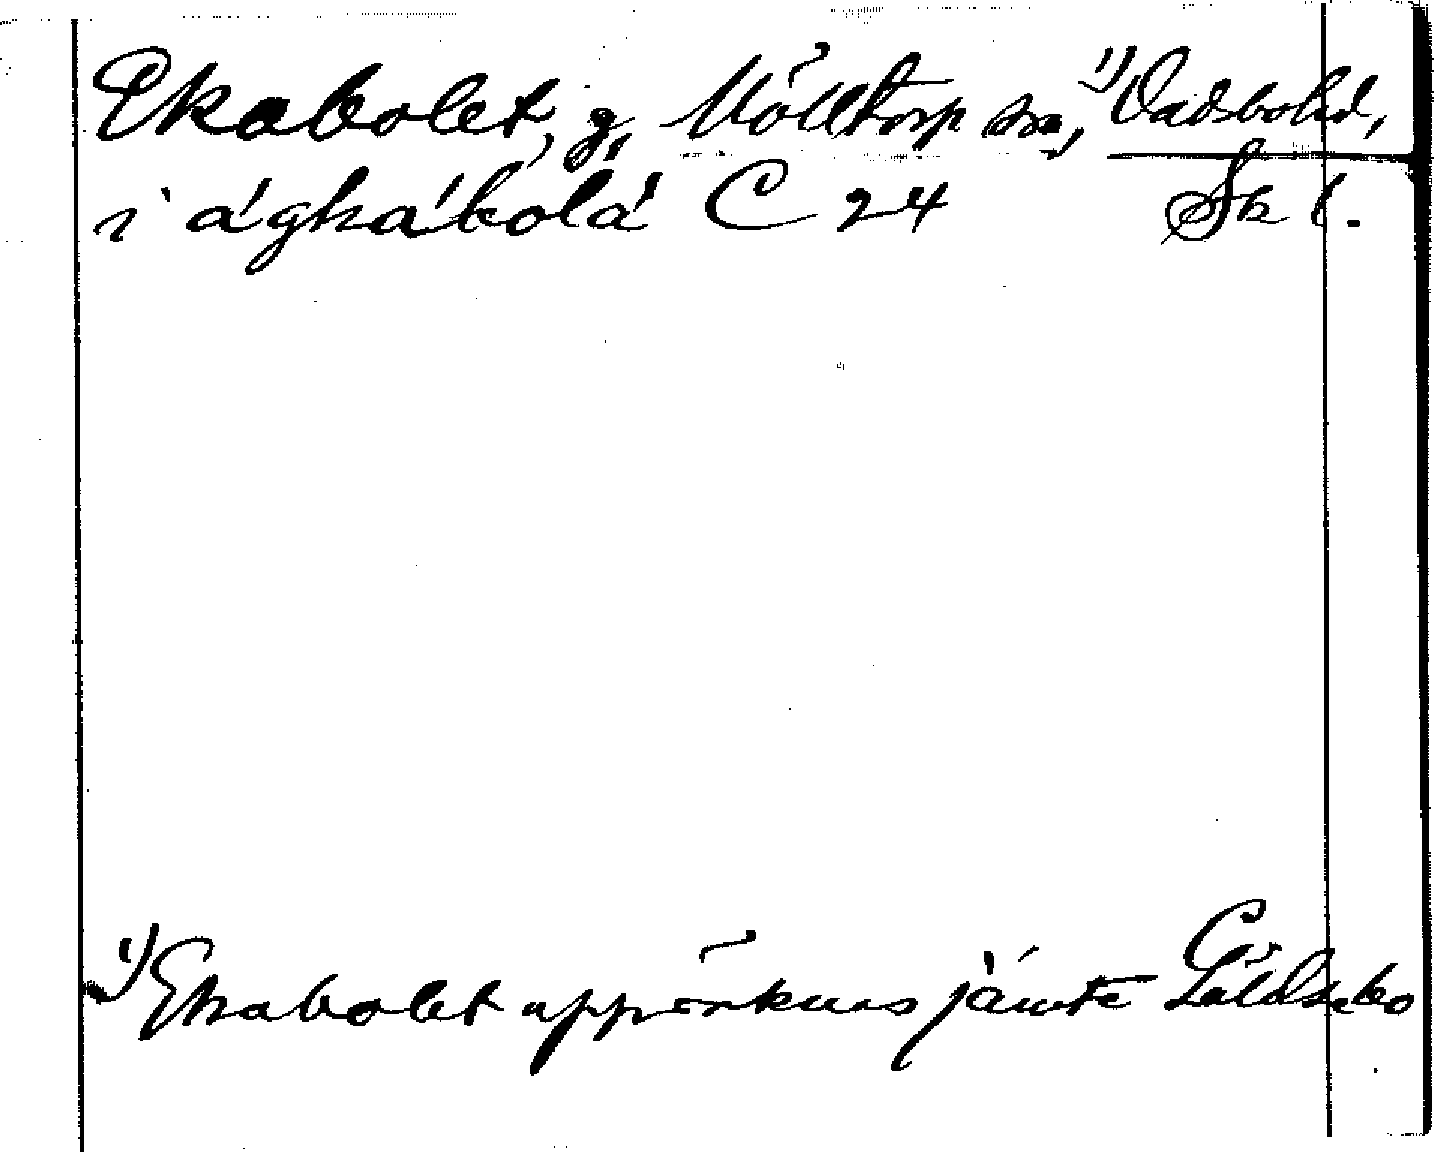 Ekabolet, g, Mölltorp sn, 1) Vadsbo hd,
i äghäbolä C 24 Sk l.
1) Ekabolet uppräknas jämte